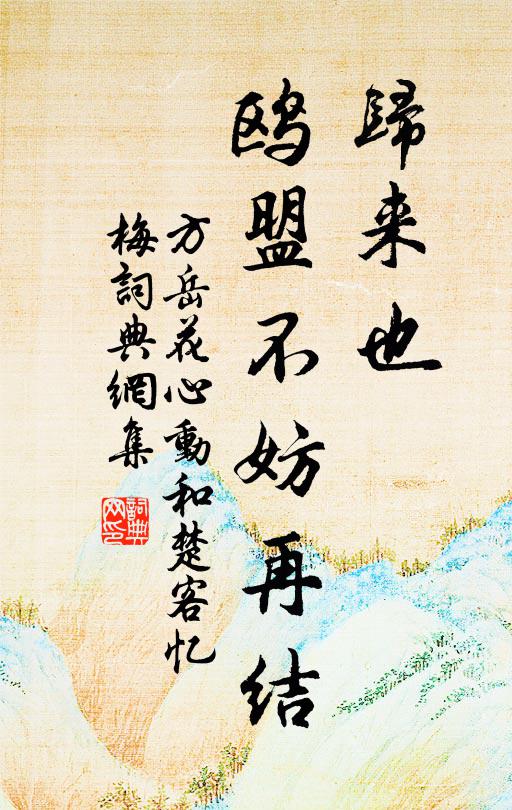 歸来也
鸥盟不妨再结
方岳花心動和楚客忆
梅詞典網集
詞典
网印